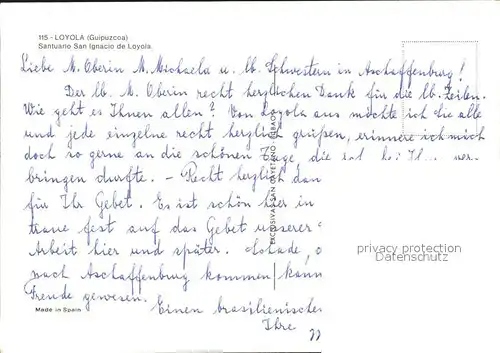 115 - LOYOLA (Guipuzcoa)
Santuario San Ignacio de Loyola.
Liebe M. Oberin M. Michaela u. lb. Schwestern in Aschaffenburg!
Der lb. M. Oberin recht herzlichen Dank für die lb. Zeilen.
Wie geht es Ihnen allen? Von Loyola aus möchte ich Sie alle
und jede einzelne recht herzlich grüßen, erinnere ich mich
doch so gerne an die schönen Tage, die
bringen durfte. – Recht herzlich
für Ihr Gebet. Es ist schön hier in
traue fest auf das Gebet unserer
Arbeit hier und später. Schade,
nach Aschaffenburg kommen kann
Freude gewesen.
Einen brasilienische
Ihre
Made in Spain
EXCLUSIVAS SAN CAYETANO - BILBAO
privacy protection
Datenschutz